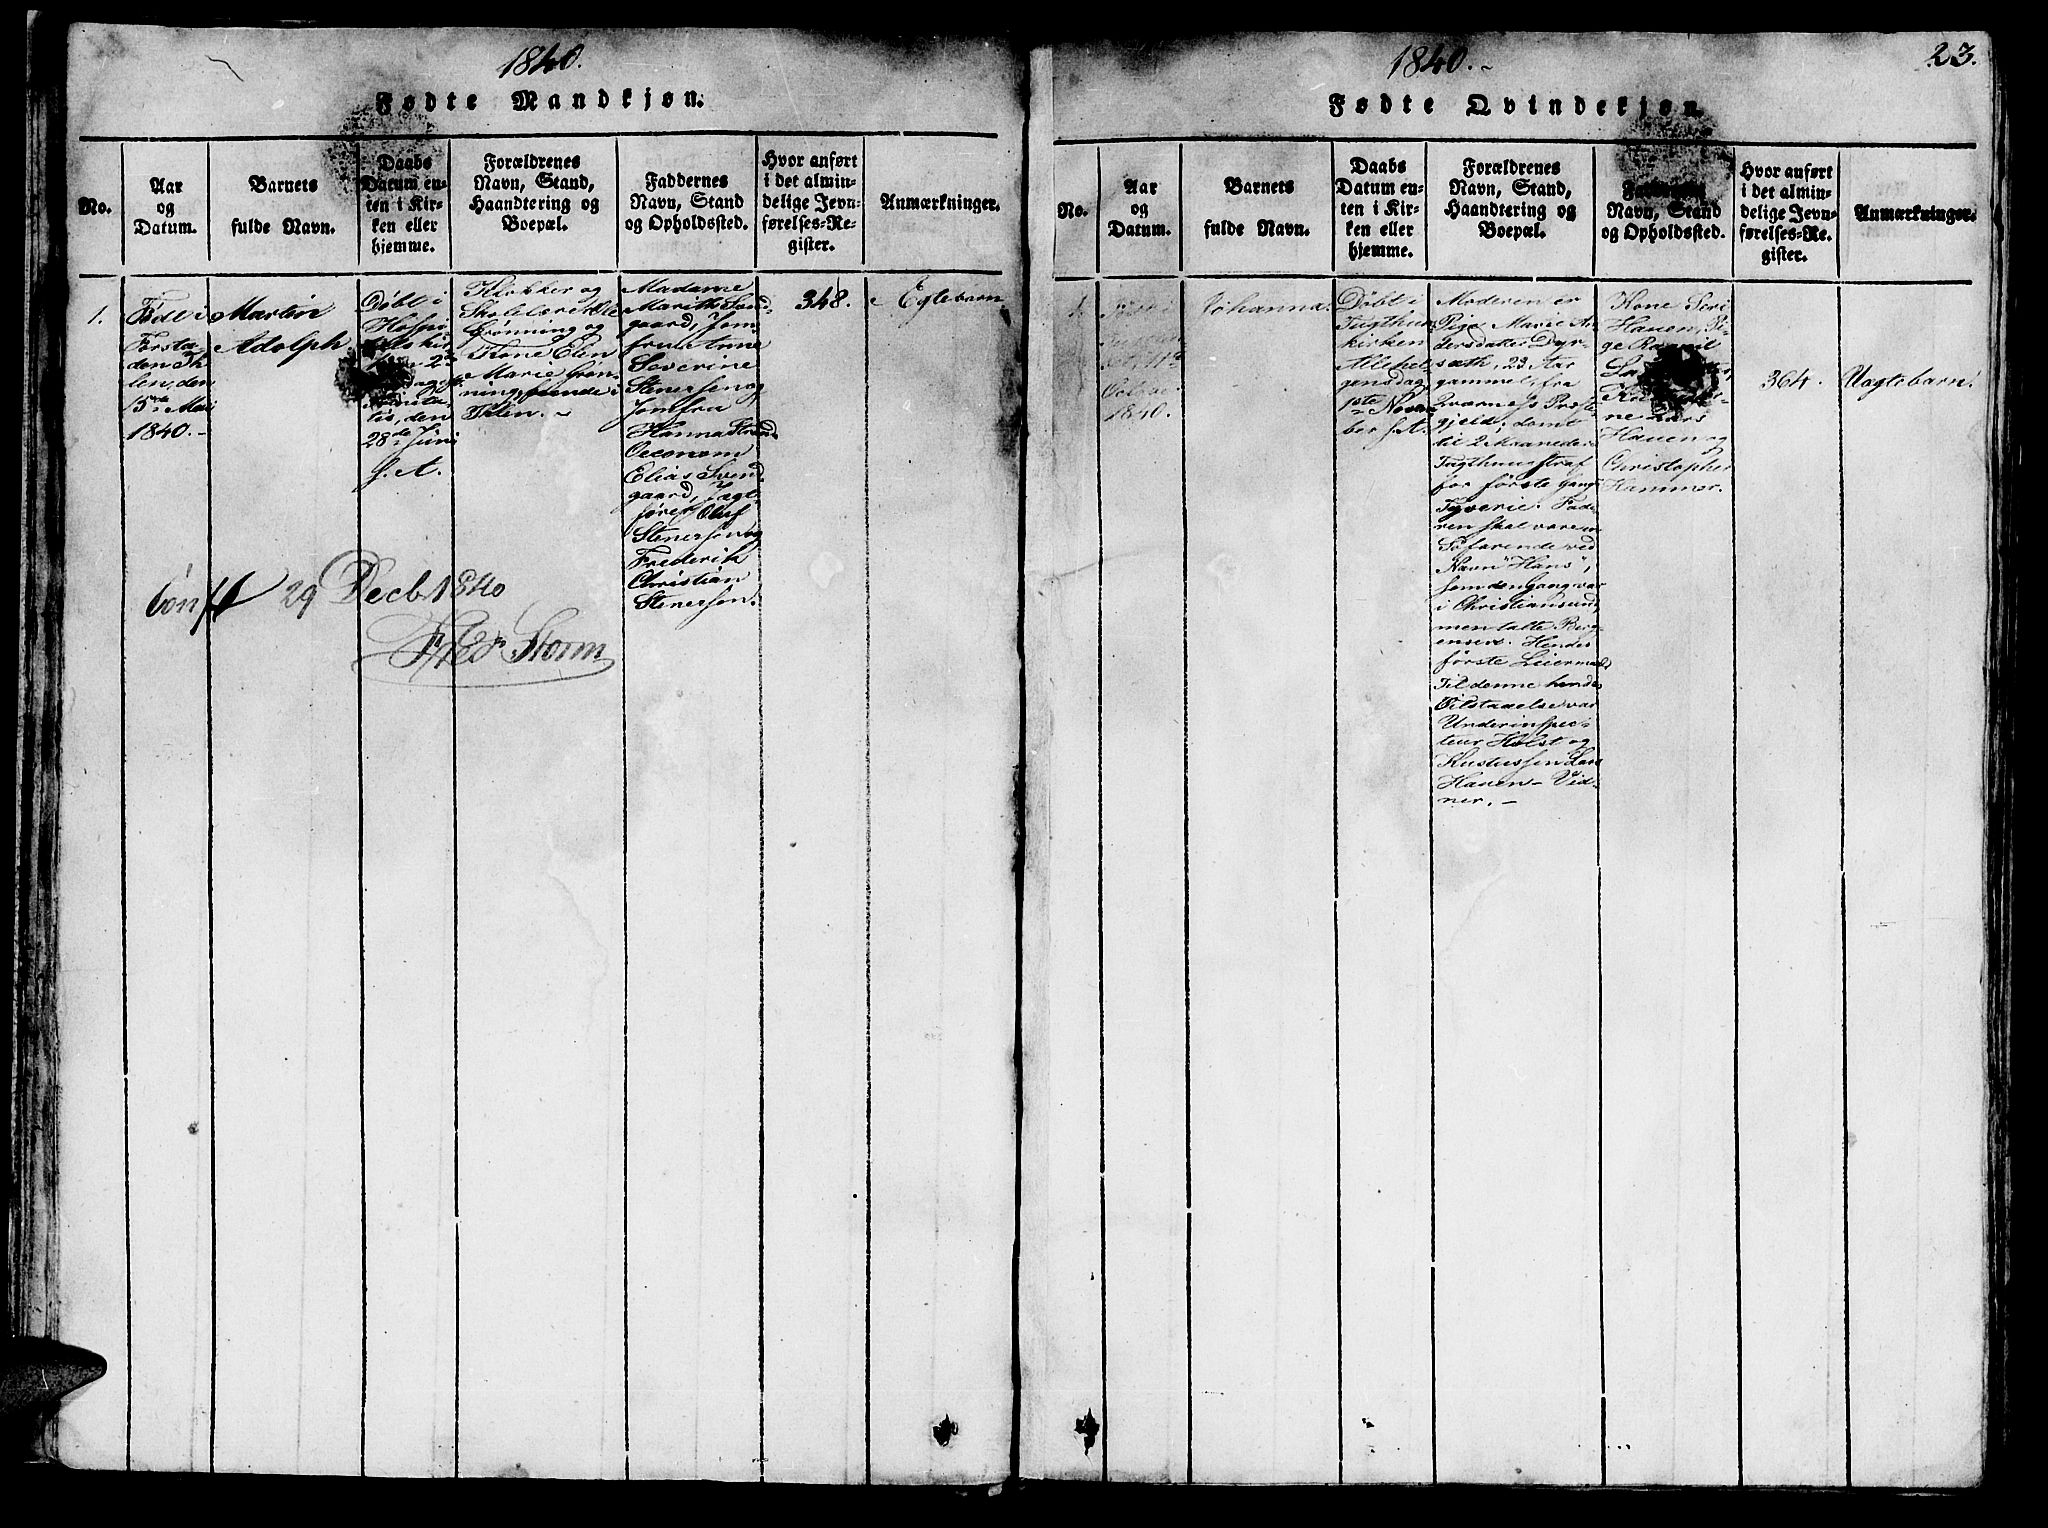 1840.
Fødte Mandkjøn.
No.
Aar
og
Datum.
Barnets
fulde Navn.
Daabs
Datum en-
ten i Kir-
ken eller
hjemme.
Forældrenes
Navn, Stand,
Haandtering og
Boepæl.
Faddernes
Navn, Stand
og Opholdssted.
Hvor anført
i det almin-
delige Jevn-
førelses-Re-
gister.
Anmærkninger.
1.
Föde i
Forsta-
den Ih-
len, den
15de Mai
1840.-
Martin
Adolph.
Döbt i
Hospi-
tals kir-
28de Juni
s. A.
Klokker og
Skolelærer Ole
Grönning og
Kone Elen
Marie Grön-
ning, boende i
Ihlen. -
Madame
gaard, Jom-
fru Anne
Severine
Stenersen og
Jomfru
Hanna
Oeconom
Elias Svend-
gaard, Jægt-
förer Oluf
Stenersen og
Frederik
Christian
Stenersen.
348.
Egtebarn
Conft 29 Decb. 1840
Fr. Storm
1840. -
23.
Fødte Qvindekjøn.
No.
Aar
og
Datum.
Barnets
fulde Navn.
Daabs
Datum en-
ten i Kir-
ken eller
hjemme.
Forældrenes
Navn, Stand,
Haandtering og
Boepæl.
Navn, Stand
og Opholdssted.
Hvor anført
i det almin-
delige Jevn-
førelses-Re-
gister.
Anmærkninger.
1.
1840.
Johanna.
Döbt i
Tugthus
kirken
Allehel-
gensdag,
1ste Novem-
ber s. A.
Moderen er
Pige Marie An-
dersdatter Dyr-
sæth, 23 Aar
gammel, fra
Qværness Præste-
gjeld; domt
til 2 Maaneders
Tugthusstraf
for förste Gang
Tyverie. Fade-
ren skal være
Söfarende ved
Navn "Hans",
som den Gang var
i Christiansund,
men talte Berg-
ensere. Hendes
förste Leiermaal
Til denne hendes
Tilstaaelse var
Underinspec-
teur Holst og
Hauen - Vid-
ner. -
Kone Seri
Hauen, Pi-
ge
Lars
Hauen og
Christopher
Hammer.
364.
Uægtebarn.